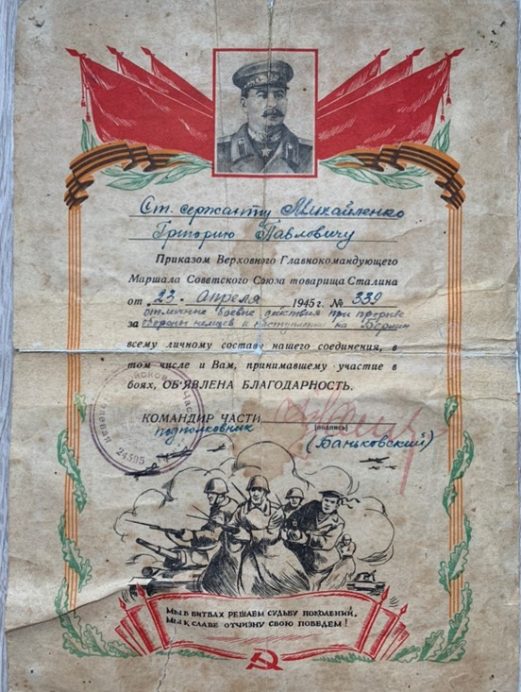 Ст. сержанту Михайленко
Григорию Павловичу
Приказом Верховного Главнокомандующего
Маршала Советского Союза товарища Сталина
от „23“ апреля 1945 г. № 339
отличные боевые действия при прорыве
за обороны немцев и наступлении на Берлин
всему личному составу нашего соединения, в
том числе и Вам, принимавшему участие в
боях, ОБ'ЯВЛЕНА БЛАГОДАРНОСТЬ.
КОМАНДИР ЧАСТИ
(подпись)
подполковник (Баньковский)
полевая 24595
МЫ В БИТВАХ РЕШАЕМ СУДЬБУ ПОКОЛЕНИЙ,
МЫ К СЛАВЕ ОТЧИЗНУ СВОЮ ПОВЕДЕМ!